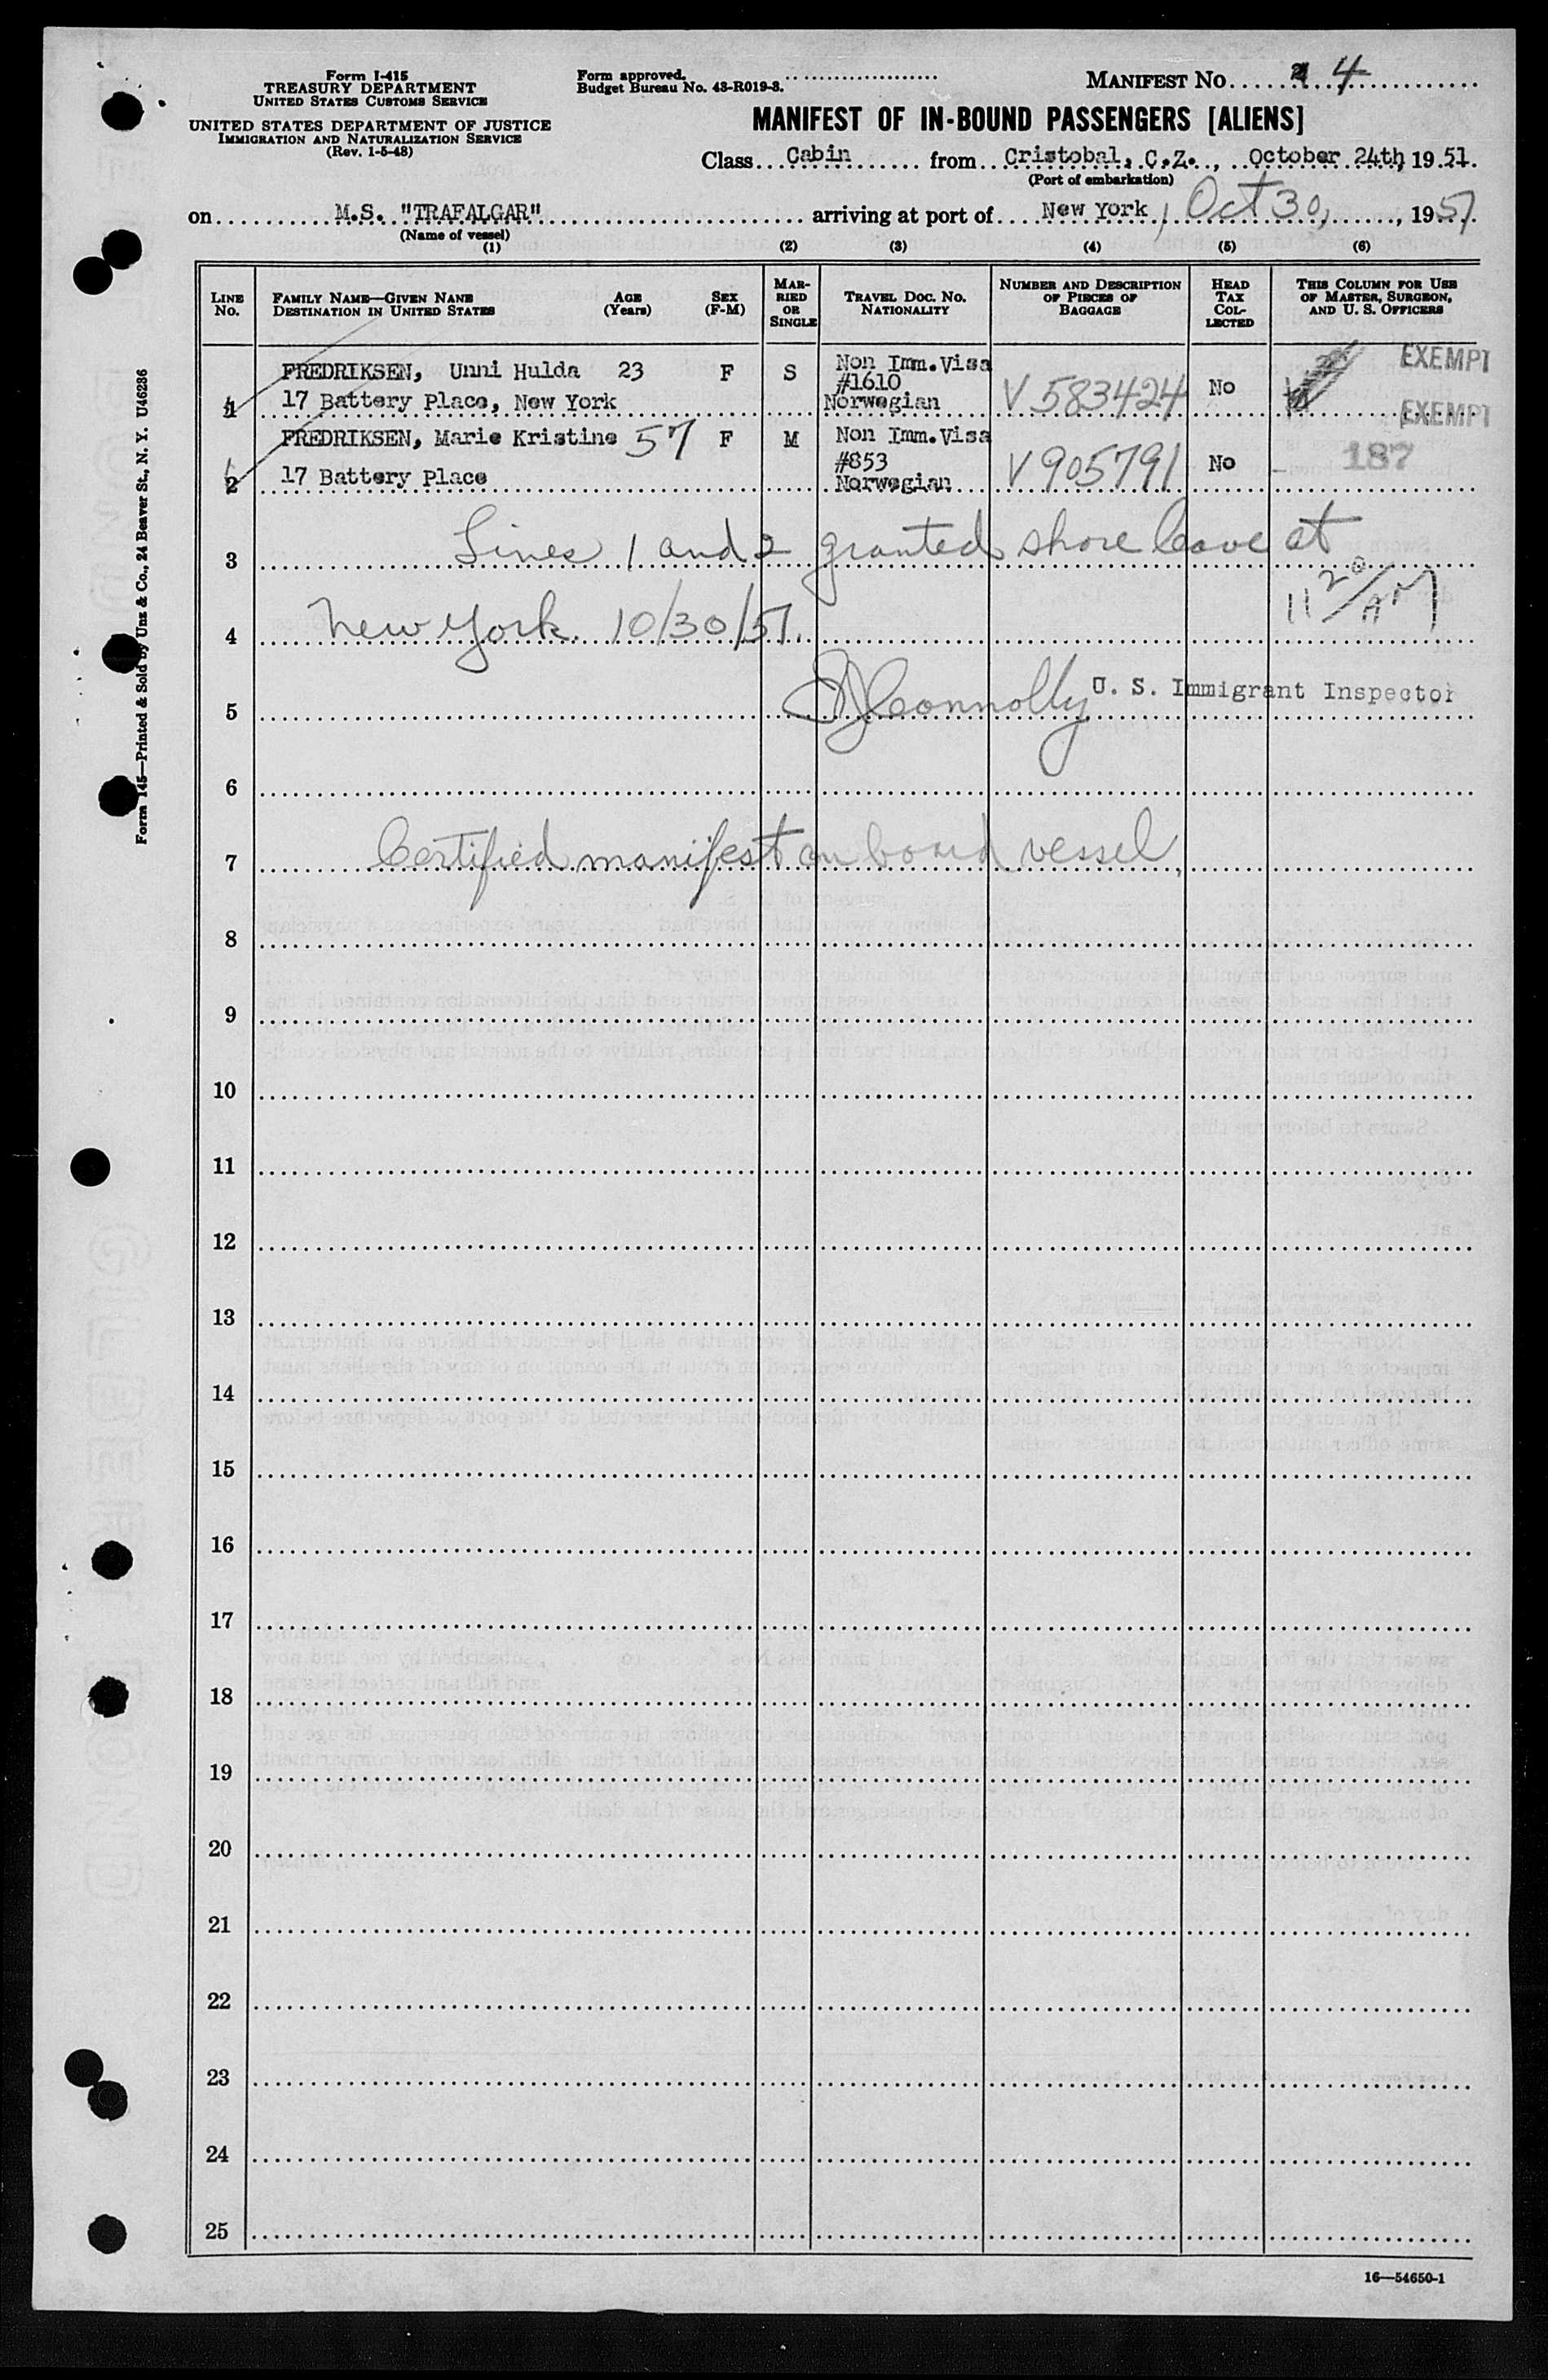 Form I-415
TREASURY DEPARTMENT
UNITED STATES CUSTOMS SERVICE
UNITED STATES DEPARTMENT OF JUSTICE
IMMIGRATION AND NATURALIZATION SERVICE
(Rev. 1-5-48)
Form approved.
Budget Bureau No. 43-R019-3.
MANIFEST NO. 4
MANIFEST OF IN-BOUND PASSENGERS [ALIENS]
Class Cabin from Cristobal, C.Z., October 24th, 1951.
(Port of embarkation)
on M.S. "TRAFALGAR" arriving at port of New York, Oct 30, 1951
(Name of vessel)
(1) (2) (3) (4) (5) (6)
LINE NO.
FAMILY NAME—GIVEN NAME DESTINATION IN UNITED STATES
AGE (Years)
SEX (F-M)
MARRIED OR SINGLE
TRAVEL DOC. NO. NATIONALITY
NUMBER AND DESCRIPTION OF PIECES OF BAGGAGE
HEAD TAX COLLECTED
THIS COLUMN FOR USE OF MASTER, SURGEON, AND U. S. OFFICERS
1 FREDRIKSEN, Unni Hulda 23 F S Non Imm. Visa #1610 Norwegian V 583424 No EXEMPT
17 Battery Place, New York
EXEMPT
2 FREDRIKSEN, Marie Kristine 57 F M Non Imm. Visa #853 Norwegian V 905791 No 187
17 Battery Place
3 Lines 1 and 2 granted shore leave at
4 New York. 10/30/51. 11 20/AM
5 Connolly U. S. Immigrant Inspector
6
7 Certified manifest on board vessel.
8
9
10
11
12
13
14
15
16
17
18
19
20
21
22
23
24
25
16—54650-1
Form 145—Printed & Sold by Unz & Co., 24 Beaver St., N. Y. U46236